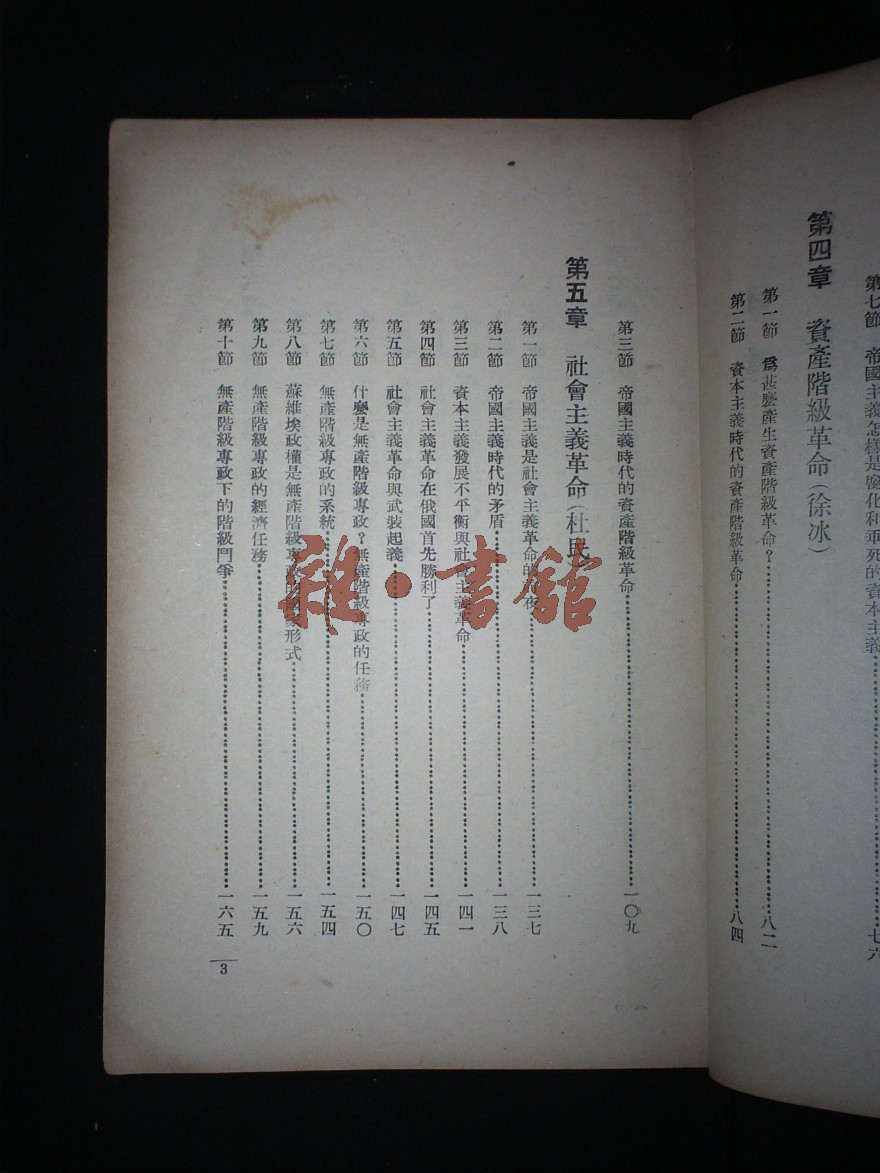 第七節　帝國主義怎樣是腐化和垂死的資本主義……七六
第四章　資產階級革命（徐冰）
第一節　爲甚麼產生資產階級革命？……八二
第二節　資本主義時代的資產階級革命……八四
第三節　帝國主義時代的資產階級革命……一〇九
第五章　社會主義革命（杜民）
第一節　帝國主義是社會主義革命的前夜……一三七
第二節　帝國主義時代的矛盾……一三八
第三節　資本主義發展不平衡與社會主義革命……一四一
第四節　社會主義革命在俄國首先勝利了……一四五
第五節　社會主義革命與武裝起義……一四七
第六節　什麼是無產階級專政？無產階級專政的任務……一五〇
第七節　無產階級專政的系統……一五四
第八節　蘇維埃政權是無產階級專政的國家形式……一五六
第九節　無產階級專政的經濟任務……一五九
第十節　無產階級專政下的階級鬥爭……一六五
3
雜·書館